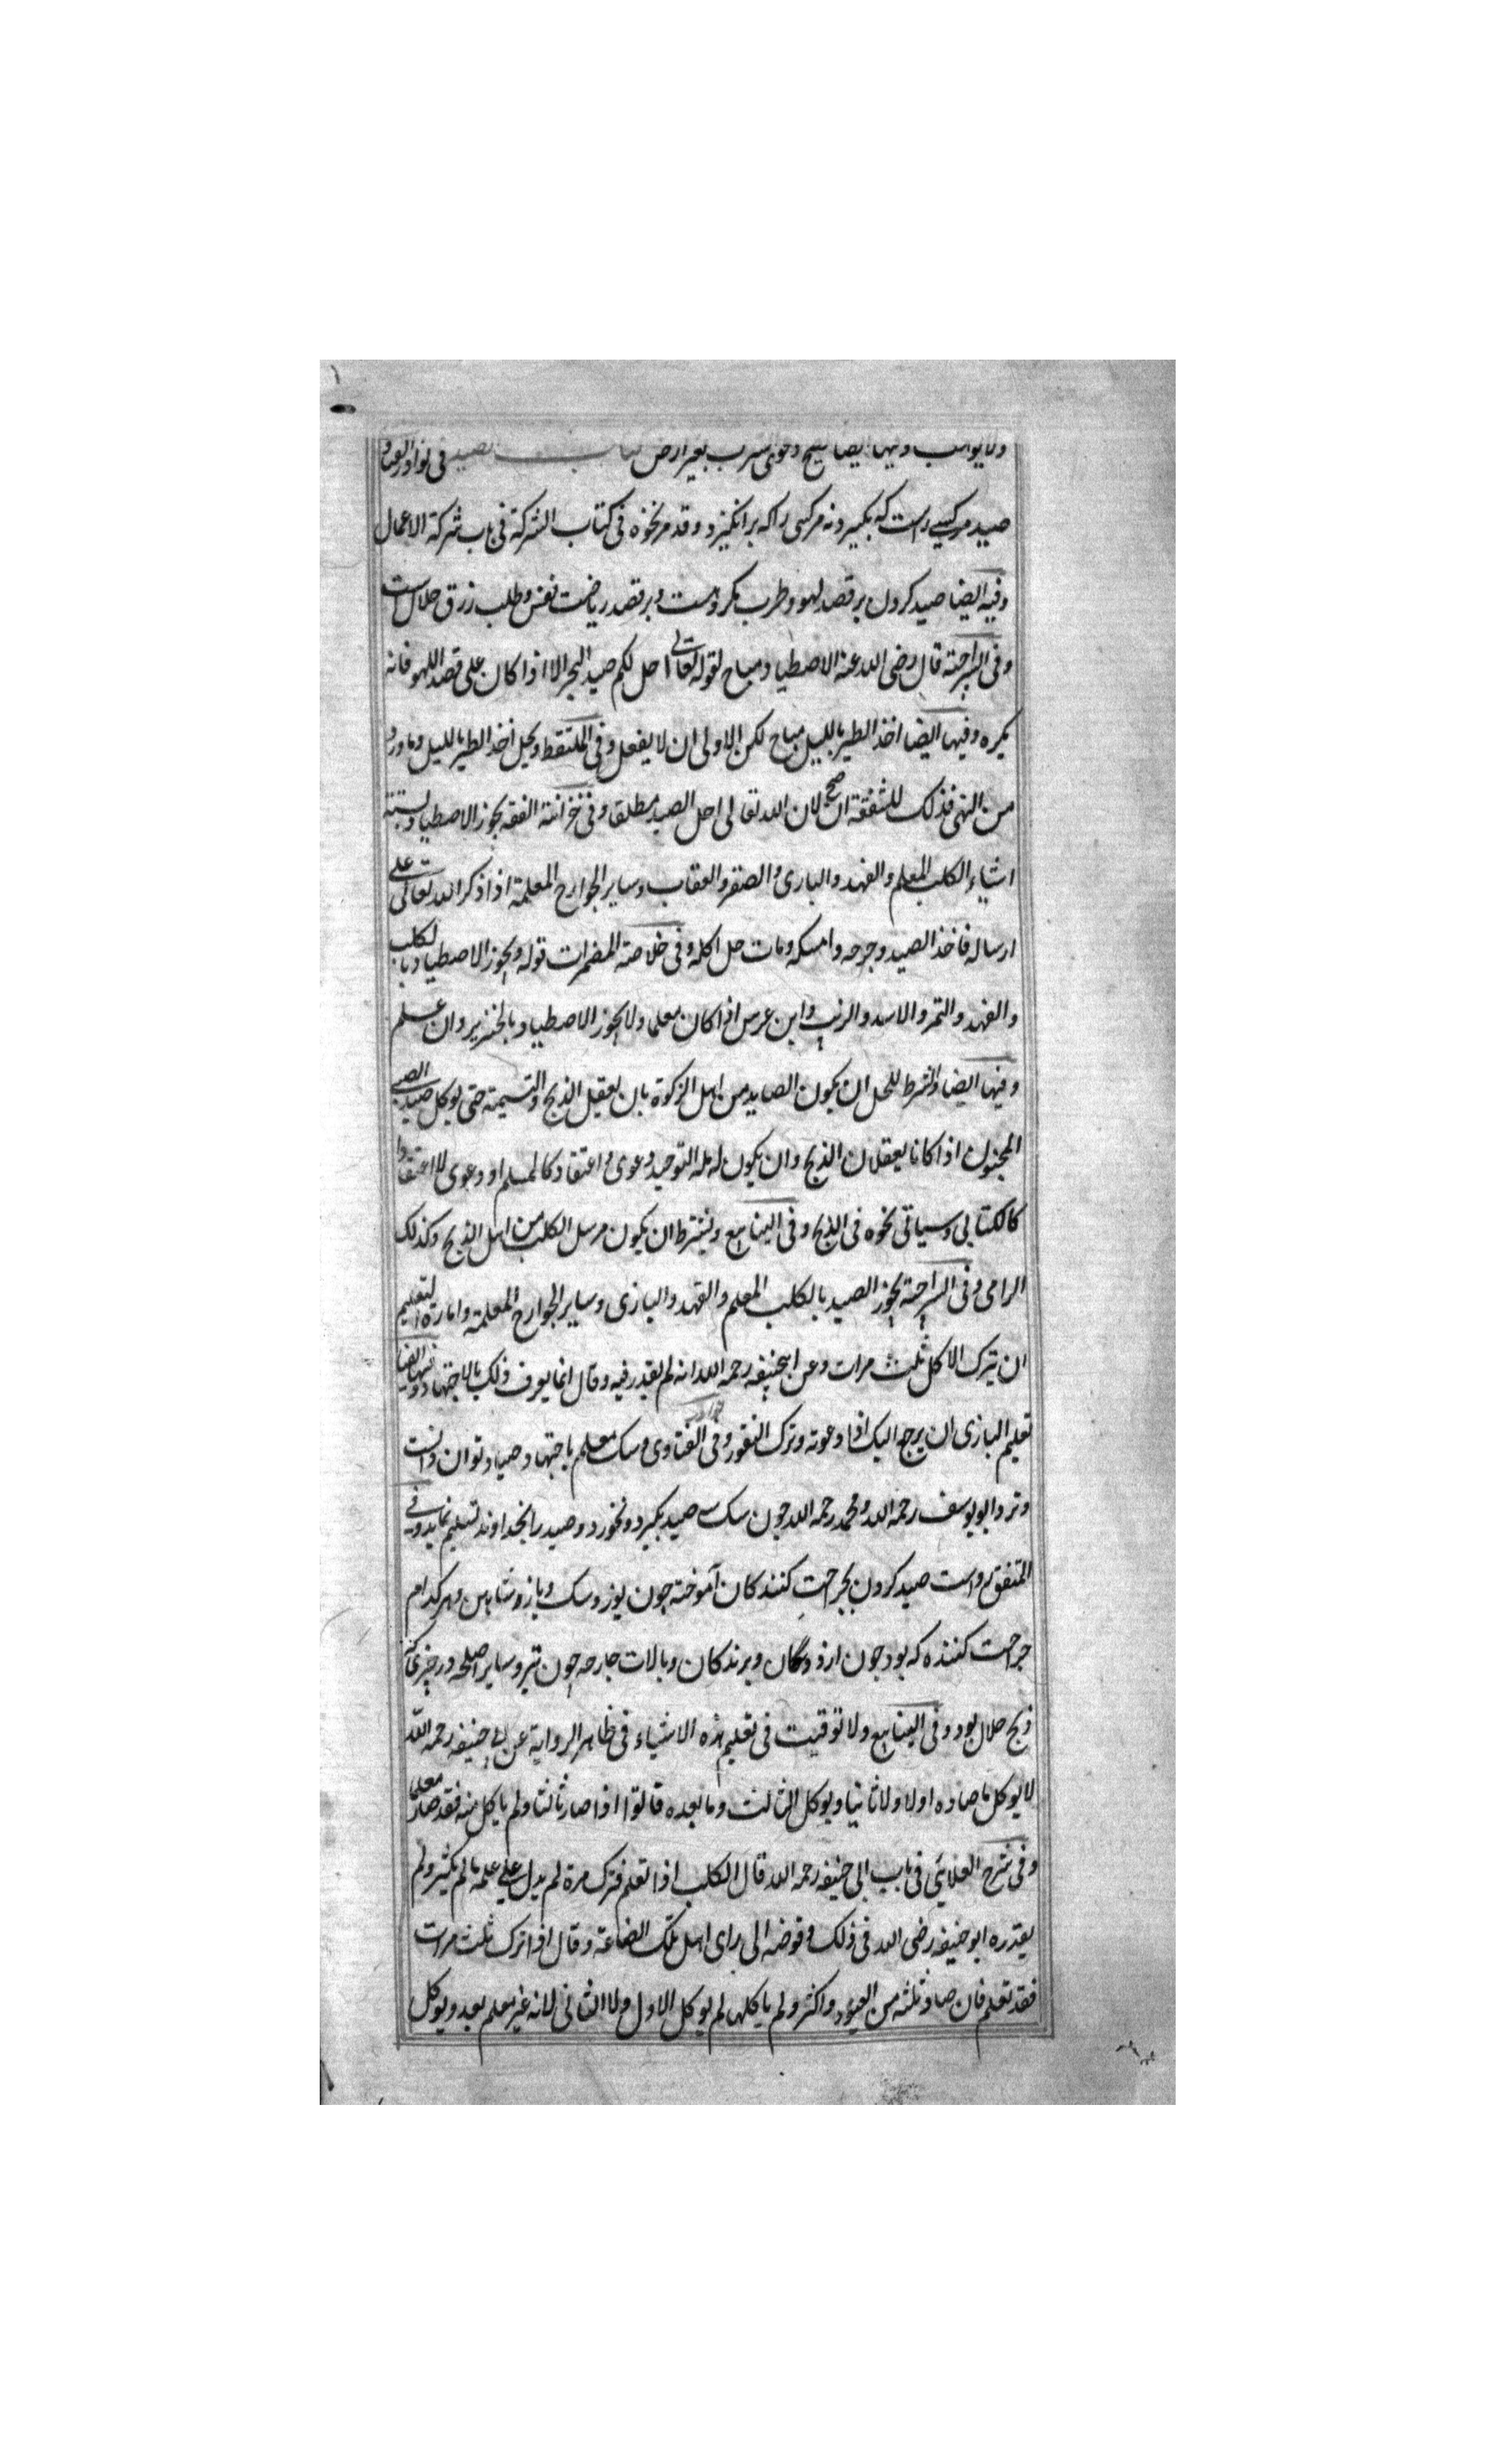 ولا یواهب وفیها ایضا یصح دعوی شرب بغیر ارض کتاب الصید فی نوادر الفتاوی
صید مر کسی راست که بکیرد نه مر کسی را که برانکیزد وقد مر نحوه فی کتاب الشرکة فی باب شرکة الاعمال
وفیه ایضا صید کردن بر قصد لهو وطرب مکروهست وبر قصد ریاضت نفس وطلب رزق حلال است
وفی السراجیة قال رضی الله عنه الاصطیاد مباح لقوله تعالی احل لکم صید البحر الا اذا کان علی قصد اللهو فانه
یکره وفیها ایضا اخذ الطیر باللیل مباح لکن الاولی ان لا یفعل وفی الملتقط ویحل اخذ الطیر باللیل وما ورد
من النهی فذلک للشفقة ان صح لان الله تعالی احل الصید مطلقا وفی خزانة الفقه یجوز الاصطیاد بستة
اشیاء الکلب المعلم والفهد والبازی والصقر والعقاب وسایر الجوارح المعلمة اذا ذکر الله تعالی علی
ارساله فاخذ الصید وجرحه وامسکه ومات حل اکله وفی خلاصة المضمرات قوله ویجوز الاصطیاد بالکلب
والفهد والنمر والاسد والذئب وابن عرس اذا کان معلما ولا یجوز الاصطیاد بالخنزیر وان علم
وفیها ایضا والشرط للحل ان یکون الصاید من اهل الزکوة بان یعقل الذبح والتسمیة حتی یوکل صید الصبی
المجنون اذا کانا یعقلان الذبح وان یکون له ملة التوحید دعوی واعتقادا کالمسلم او دعوی لا اعتقادا
کالکتابی وسیاتی نحوه فی الذبح وفی الینابیع ویشترط ان یکون مرسل الکلب من اهل الذبح وکذلک
الرامی وفی السراجیة یجوز الصید بالکلب المعلم والفهد والبازی وسایر الجوارح المعلمة وامارة التعلیم
ان یترک الاکل ثلث مرات وعن ابیحنیفه رحمه الله انه لم یقدر فیه وقال انما یعرف ذلک بالاجتهاد وفیها ایضا
تعلیم البازی ان یرجع الیک اذا دعوته وترک النفور وفی الفتاوی وسک معلم باجتهاد صیاد توان دانست
ونزد ابو یوسف رحمه الله ومحمد رحمه الله چون سک سه صید بکیرد ونخورد وصید را بخداوند تسلیم نماید وفی
المتفق رواست صید کردن بجراحت کنندکان آموخته چون یوز وسک وباز وشاهین وهر کدام
جراحت کننده که بود چون از ددکان وپرندکان وبالات جارحه چون تیر وسایر اسلحه در چیزی که
ذبح حلال بود وفی الینابیع ولا توقیت فی تعلیم هذه الاشیاء فی ظاهر الروایة عن ابی حنیفه رحمه الله
لا یوکل ما صاده اولا ولا ثانیا ویوکل الثالث وما بعده قالوا اذا صار ثالثا ولم یاکل منه فقد صار معلما
وفی شرح العلائی فی باب ابی حنیفه رحمه الله قال الکلب اذا تعلم فترک مرة لم یدل علی علمه ما لم یکثر ولم
یقدره ابو حنیفه رضی الله فی ذلک وفوضه الی رای اهل تلک الصناعة وقال اذا ترک ثلث مرات
فقد تعلم فان صاد ثلثه من الصیود واکثر ولم یاکلها لم یوکل الاول ولا الثانی لانه غیر معلم بعد ویوکل